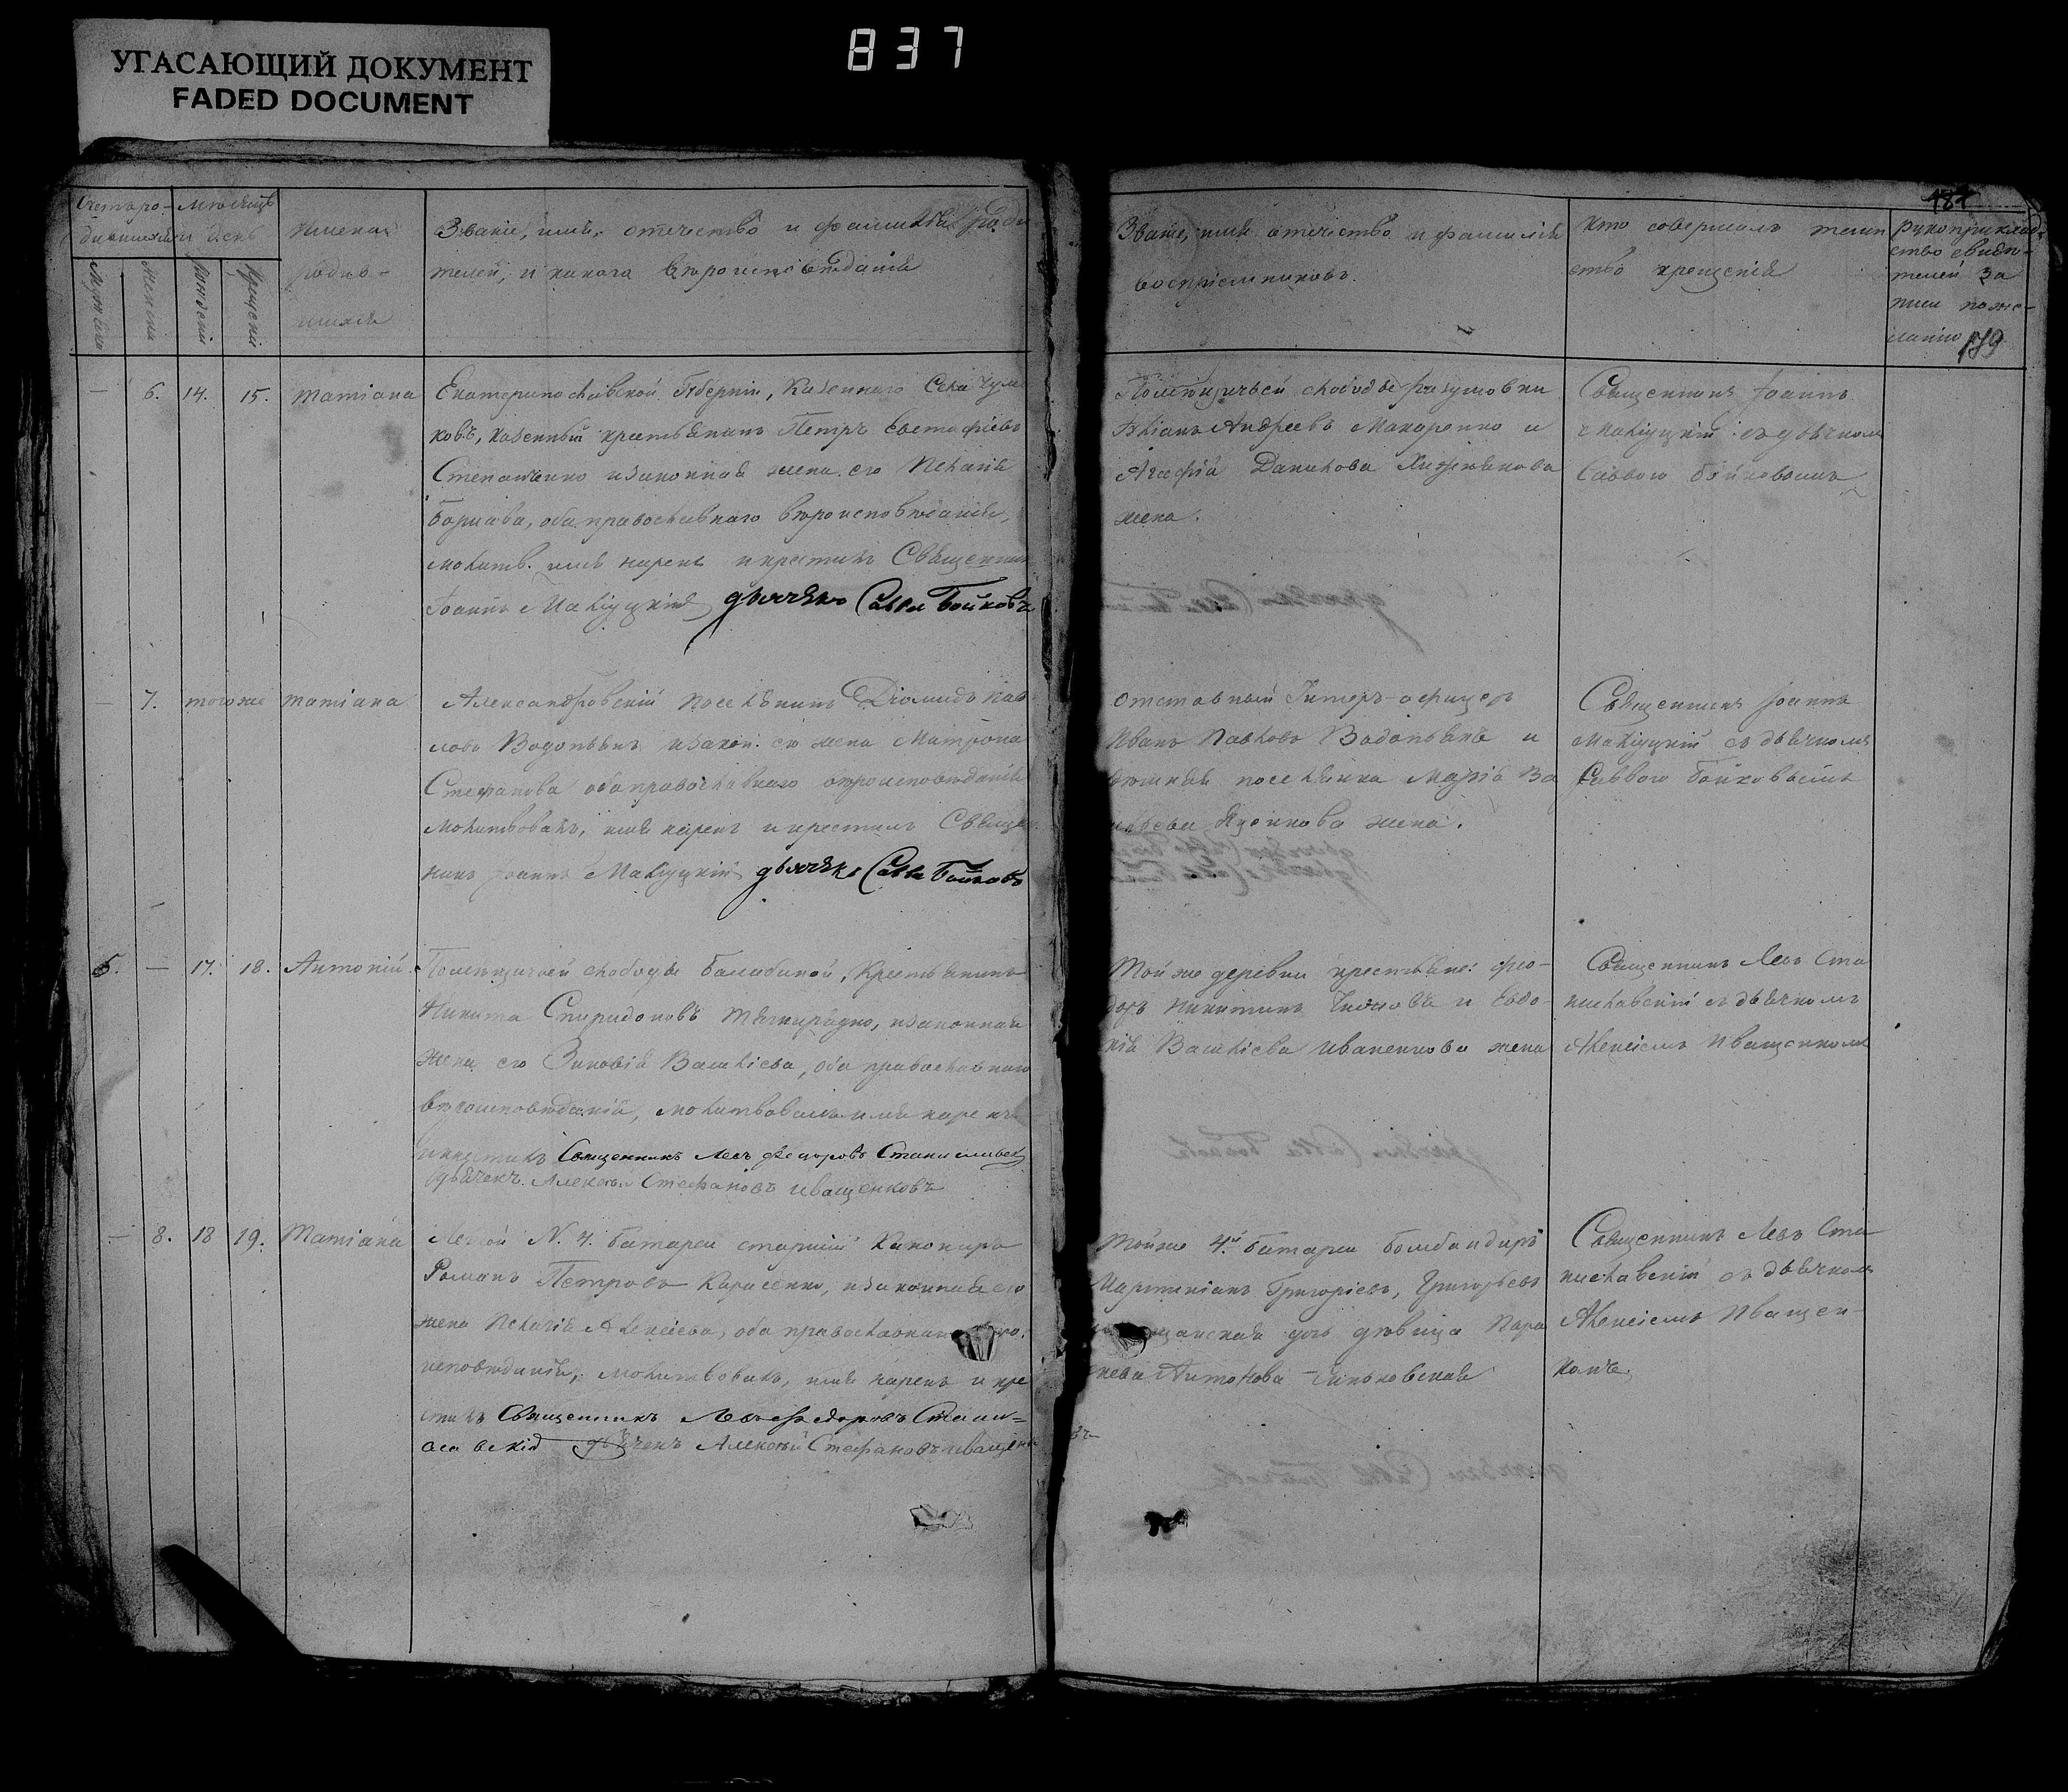 УГАСАЮЩИЙ ДОКУМЕНТ
FADED DOCUMENT
837
Счетъ ро-
дившихся
Мужеска
Женска
Мѣсяцъ
и день
Рожденія
Крещенія
Имена
родив-
шихся
Званіе, имя, отечество и фамилія роди
телей, и какого вѣроисповѣданія
Званіе, имя отечество и фамилія
воспріемниковъ.
Кто совершалъ таин
ство крещенія
181
рукоприклад
ство свидѣ-
телей за
писи поже-
ланію
179
— 6. 14. 15. Татіана
Екатеринославской Губерніи, Казеннаго Села
ковъ, казенный крестьянинъ Петръ Евстафіевъ
Степаненко изаконная жена его Пелагія
Борисова, оба православнаго вѣроисповѣданія,
молитв. имя нарекъ и крестилъ Священник
Іоаннъ дьячекъ Савва Бойковъ
Помѣщичьей слободы Разумовки
Андреевъ Макаренко и
Агафія Данилова Хижнякова
жена.
Священникъ Іоаннъ
съ дьячкомъ
Саввою Бойковымъ
— 7. того же Татіана
Александровскій поселянинъ Діомидъ Пав
ловъ Водопьянъ изакон. его жена Матрона
Стефанова оба православнаго вѣроисповѣданія
молитвовалъ, имя нарекъ и крестилъ Священ
никъ Іоаннъ дьячекъ Савва Бойковъ
Отставный Унтеръ-офицеръ
Иванъ Павловъ Водопьянъ и
поселянка Марія Ва
жена.
Священникъ Іоаннъ
съ дьячкомъ
Саввою Бойковымъ
5. — 17. 18. Антоній.
Помѣщичьей слободы Балабиной, Крестьянинъ
Никита Спиридоновъ Тягнирядно, изаконная
жена его Зиновія Василіева, оба православнаго
вѣроисповѣданія, молитвовалъ имя нарекъ
и крестилъ Священникъ Левъ Федоровъ Станиславск
дьячекъ Алексѣй Стефановъ Иващенковъ
Той же деревни крестьяне: Фео-
доръ Никитинъ и Евдо-
кія Василіева Иваненкова жена
Священникъ Левъ Ста
ниславскій съ дьячкомъ
Алексіемъ Иващенкомъ
— 8. 18 19. Татіана
Легкой N. 4. батареи старшій Канониръ
Романъ Петровъ Карасенко, изаконная его
жена Пелагія Алексіева, оба православнаго вѣро.
исповѣданія, молитвовалъ, имя нарекъ и кре
стилъ Священникъ Левъ Федоровъ Стани=
славскій дьячекъ Алексѣй Стефановъ Иващенко
въ
Той же 4.й батареи бомбандиръ
Мартиніанъ Григоріевъ, Григорьевъ
дочь дѣвица Пара
скева Антонова
Священникъ Левъ Ста
ниславскій съ дьячкомъ
Алексіемъ Иващен-
комъ.